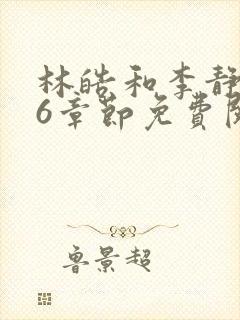 林皓和李静
6章節免費閱
魯景超